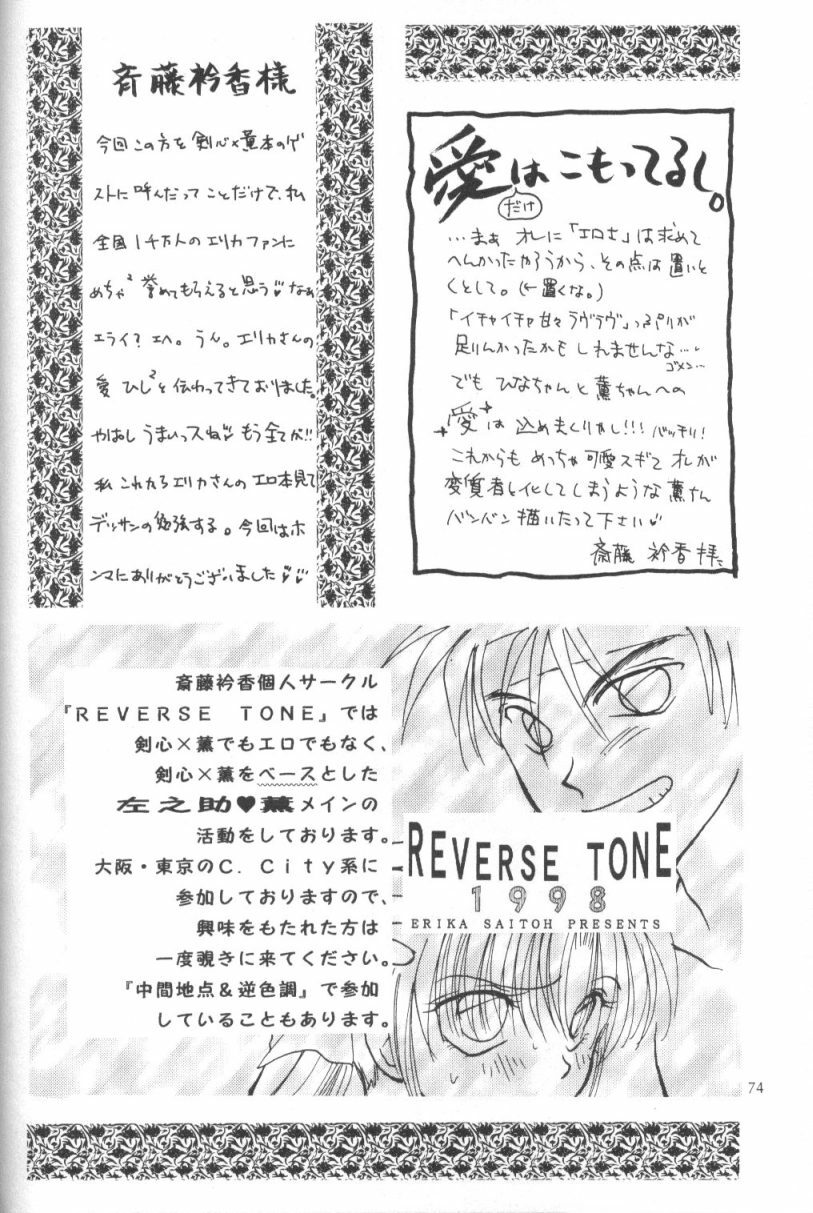 斉藤衿香様
今回この方を剣心×薫本のゲ
ストに呼んだってことだけで、私
全国1千万人のエリカファンに
めちゃ²誉めてもらえると思う♡なぁ
エライ?エヘ。うん。エリカさんの
愛ひし²と伝わってきておりました。
やはしうまいっスね♡もう全てが!!
私これからエリカさんのエロ本見て
デッサンの勉強する。今回はホ
ンマにありがとうございました♡♡
愛はこもってるし。
だけ
…まぁオレに「エロさ」は求めて
へんかったやろうから、その点は置いと
くとして。(←置くな。)
「イチャイチャ甘々ラヴラヴ」っぷりが
足りんかったかもしれませんな…
ゴメン…
でもひなちゃんと薫ちゃんへの
愛は込めまくりやし!!!バッチリ!
これからもめっちゃ可愛スギてオレが
変質者と化してしまうような薫さん
バンバン描いたって下さい♡
斎藤衿香拝
斎藤衿香個人サークル
『REVERSE TONE』では
剣心×薫でもエロでもなく、
剣心×薫をベースとした
左之助♥薫メインの
活動をしております。
大阪・東京のC. City系に
参加しておりますので、
興味をもたれた方は
一度覗きに来てください。
『中間地点&逆色調』で参加
していることもあります。
REVERSE TONE
1998
ERIKA SAITOH PRESENTS
74